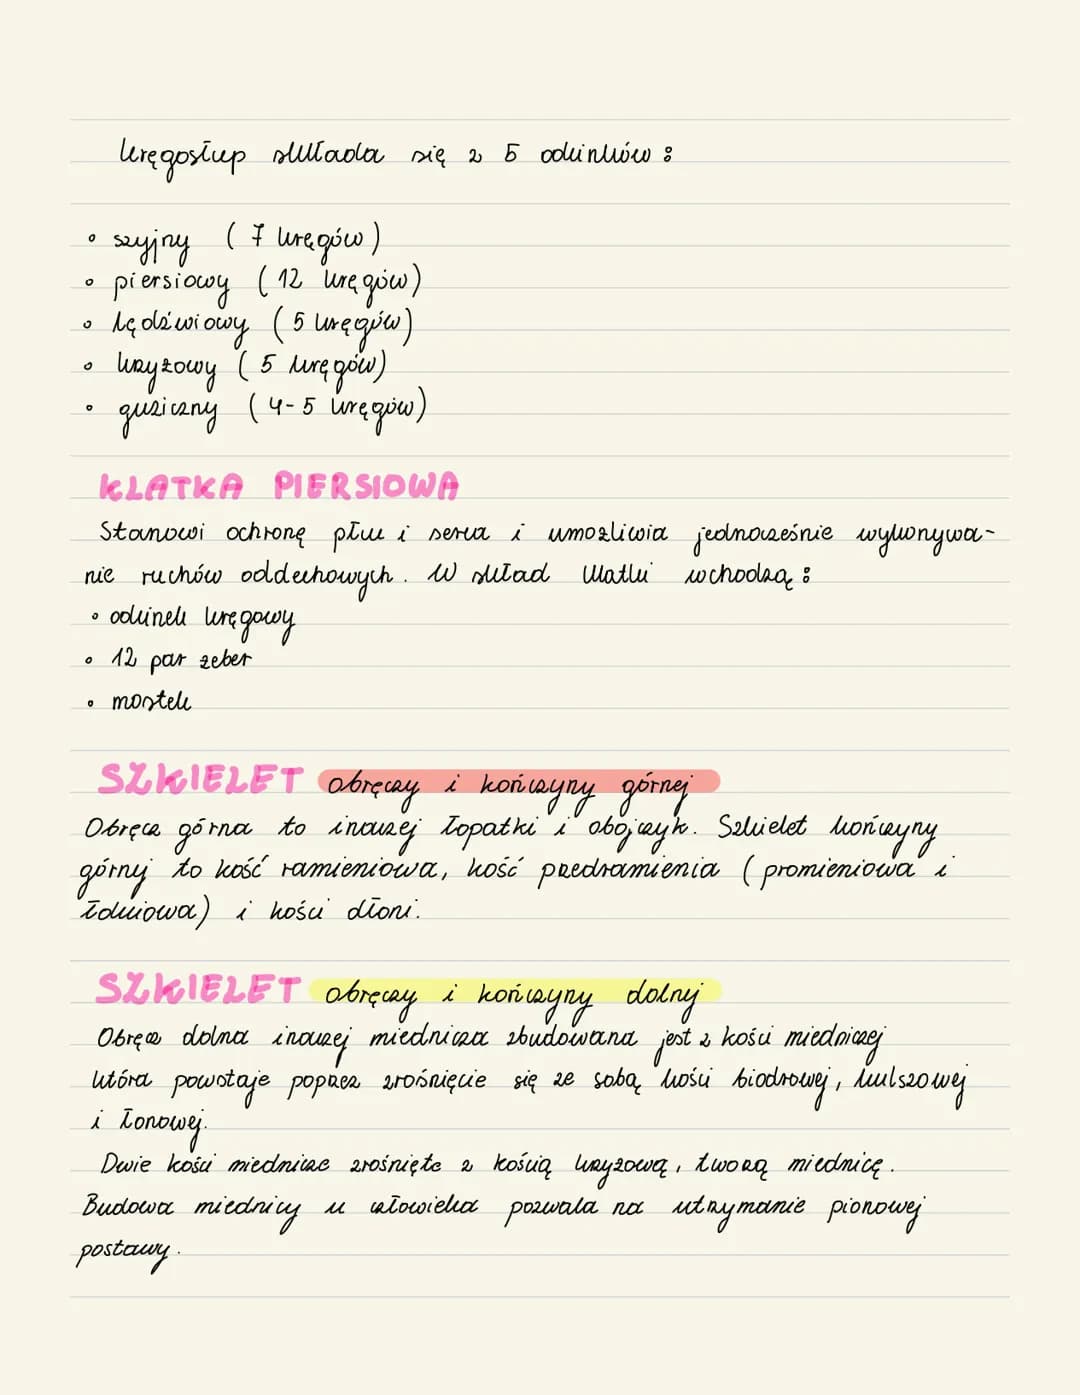 kręgosłup składa się z 5 odcinków :
• szyjny ( 7 kręgów )
• piersiowy ( 12 kręgów )
• lędźwiowy ( 5 kręgów )
• krzyżowy ( 5 kręgów )
• guziczny ( 4-5 kręgów )
KLATKA PIERSIOWA
Stanowi ochronę płuc i serca i umożliwia jednocześnie wykonywa-
nie ruchów oddechowych. W skład klatki wchodzą :
• odcinek kręgowy
• 12 par żeber
• mostek
SZKIELET obręczy i kończyny górnej
Obręcz górna to inaczej łopatki i obojczyk. Szkielet kończyny
górnj to kość ramieniowa, kość przedramienia ( promieniowa i
łokciowa) i kości dłoni.
SZKIELET obręczy i kończyny dolnj
Obręcz dolna inaczej miednicza zbudowana jest z kości miedniczej
która powstaje poprzez zrośnięcie się ze sobą kości biodrowej, kulszowej
i łonowej.
Dwie kości miednicze zrośnięte z kością krzyżową, tworzą miednicę.
Budowa miednicy u człowieka pozwala na utrzymanie pionowej
postawy.